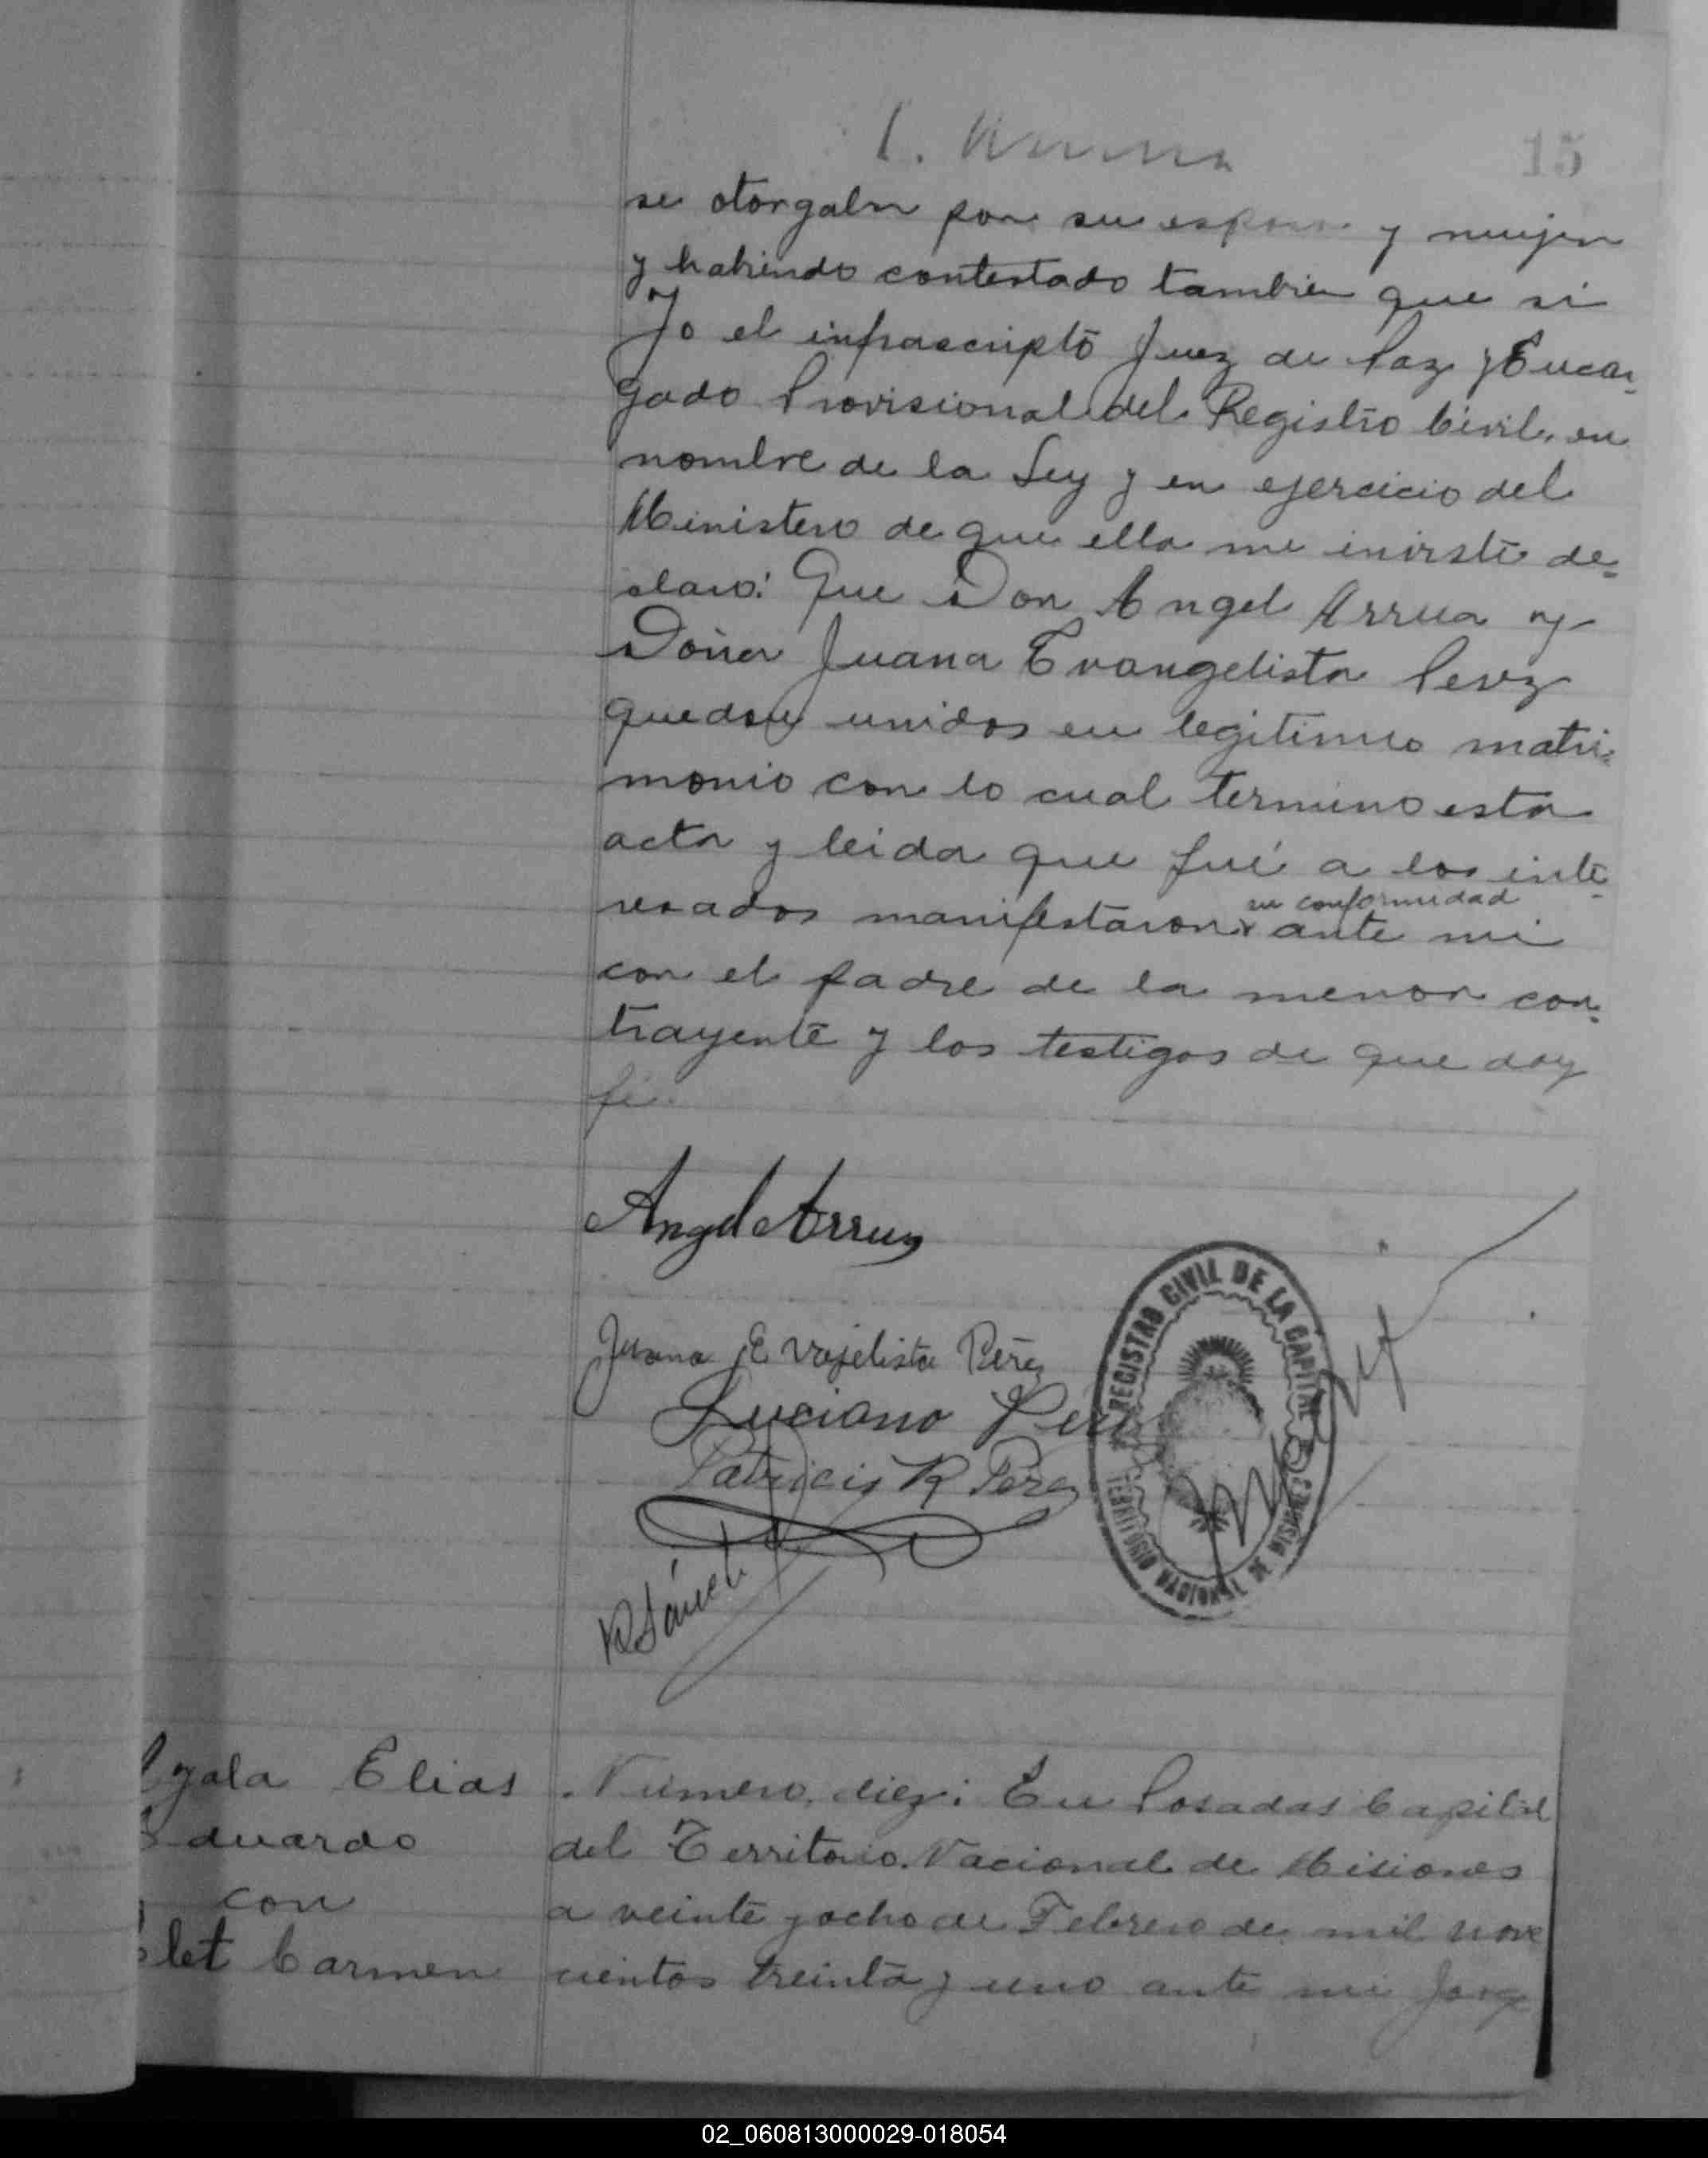 15
se otorgaln por su esposo y mujer
y habiendo contestado tambien que si
Yo el infrascripto Juez de Paz y Encar-
gado Provisional del Registro Civil, en
nombre de la Ley y en ejercicio del
Ministerio de que ella me inviste de-
claro: Que Don Angel Arrua y
Doña Juana Evangelista Perez
quedan unidos en legitimo matri-
monio con lo cual termino esta
acta y leida que fué a los inte-
resados manifestaron su conformidad ante mi
con el padre de la menor con-
trayente y los testigos de que doy
fé.
Angel Arrua
Juana Evajelista Pérez
Luciano Perez
Patricio R Perez
REGISTRO CIVIL DE LA CAPITAL
TERRITORIO NACIONAL DE MISIONES
Ayala Elias
Eduardo
con
let Carmen
Número diez: En Posadas Capital
del Territorio Nacional de Misiones
a veinte y ocho de Febrero de mil nove
cientos treinta y uno ante mi Jorge
02_060813000029-018054